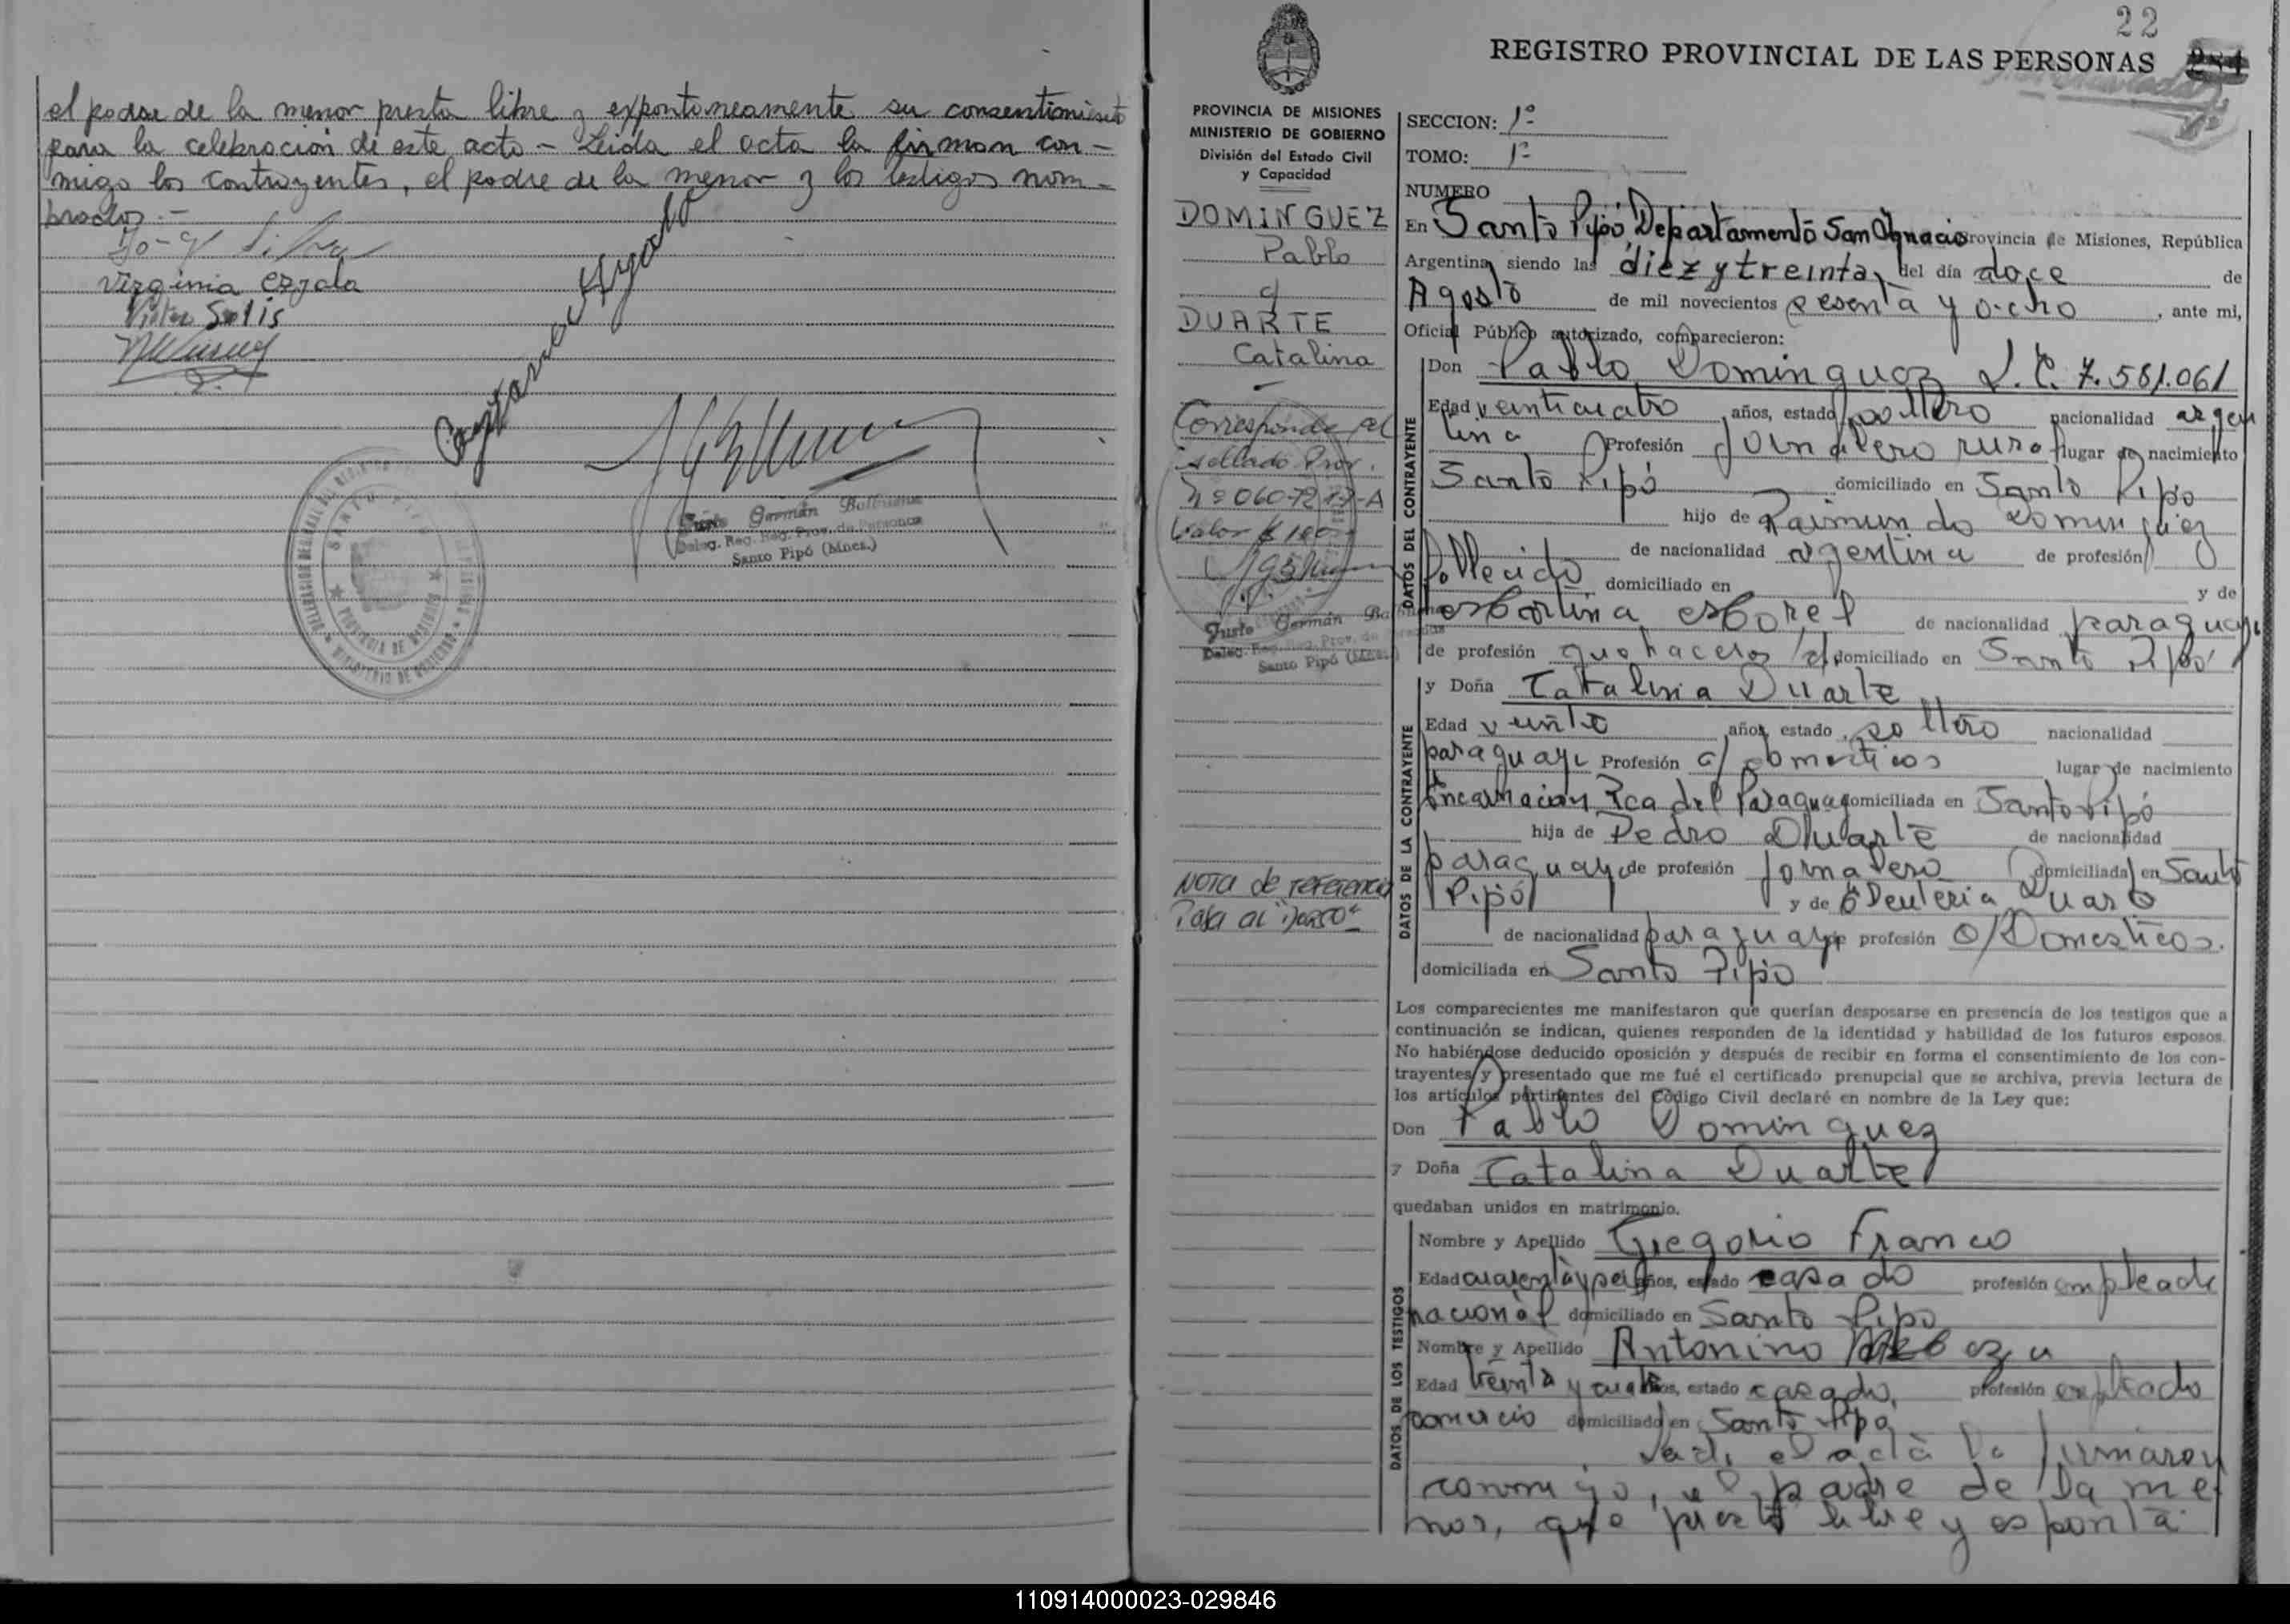 el padre de la menor presta libre y expontineamente su consentimiento
para la celebración de este acto - Leida el acta la firman con-
migo los contrayentes, el padre de la menor y los testigos nom-
brados.-
Virginia
Solis
Justo Germán
Deleg. Reg. Prov. de Personas
Santo Pipó (Mnes.)
22
REGISTRO PROVINCIAL DE LAS PERSONAS
PROVINCIA DE MISIONES
MINISTERIO DE GOBIERNO
División del Estado Civil
y Capacidad
DOMINGUEZ
Pablo
y
DUARTE
Catalina
Corresponde al
sellado Prov.
Valor $
Justo Germán
Santo Pipó
NOTA de referencia
Pasa al "Dorso"
SECCION: 1º
TOMO: 1º
NUMERO
En Santo Pipó, Departamento San Ignacio Provincia de Misiones, República
Argentina, siendo las diez y treinta, del día doce de
Agosto de mil novecientos sesenta y ocho, ante mi,
Oficial Público autorizado, comparecieron:
DATOS DEL CONTRAYENTE
Don Pablo Dominguez L.E. 7.581.061
Edad veinticuatro años, estado soltero nacionalidad argen
tina Profesión Jornalero rural lugar de nacimiento
Santo Pipó domiciliado en Santo Pipó
hijo de Raimundo Dominguez
de nacionalidad argentina de profesión
fallecido domiciliado en y de
de nacionalidad paraguaya
de profesión quehaceres domiciliado en Santo Pipó
DATOS DE LA CONTRAYENTE
y Doña Catalina Duarte
Edad veinte años, estado soltera nacionalidad
paraguaya Profesión lugar de nacimiento
Encarnacion Rca del Paraguay domiciliada en Santo Pipó
hija de Pedro Duarte de nacionalidad
paraguaya de profesión Jornalero domiciliada en Santo
Pipó y de Duarte
de nacionalidad paraguaya de profesión Q/Domesticos.
domiciliada en Santo Pipó
Los comparecientes me manifestaron que querían desposarse en presencia de los testigos que a
continuación se indican, quienes responden de la identidad y habilidad de los futuros esposos.
No habiéndose deducido oposición y después de recibir en forma el consentimiento de los con-
trayentes y presentado que me fué el certificado prenupcial que se archiva, previa lectura de
los artículos pertinentes del Código Civil declaré en nombre de la Ley que:
Don Pablo Dominguez
y Doña Catalina Duarte
quedaban unidos en matrimonio.
DATOS DE LOS TESTIGOS
Nombre y Apellido Gregorio Franco
Edad cuarenta y seis años, estado casado profesión empleado
nacional domiciliado en Santo Pipó
Nombre y Apellido Antonino
Edad treinta y cuatro años, estado casado, profesión empleado
comercio domiciliado en Santo Pipó
el acta la firmaron
conmigo, el padre de la me
nor, que presta libre y esponta
110914000023-029846